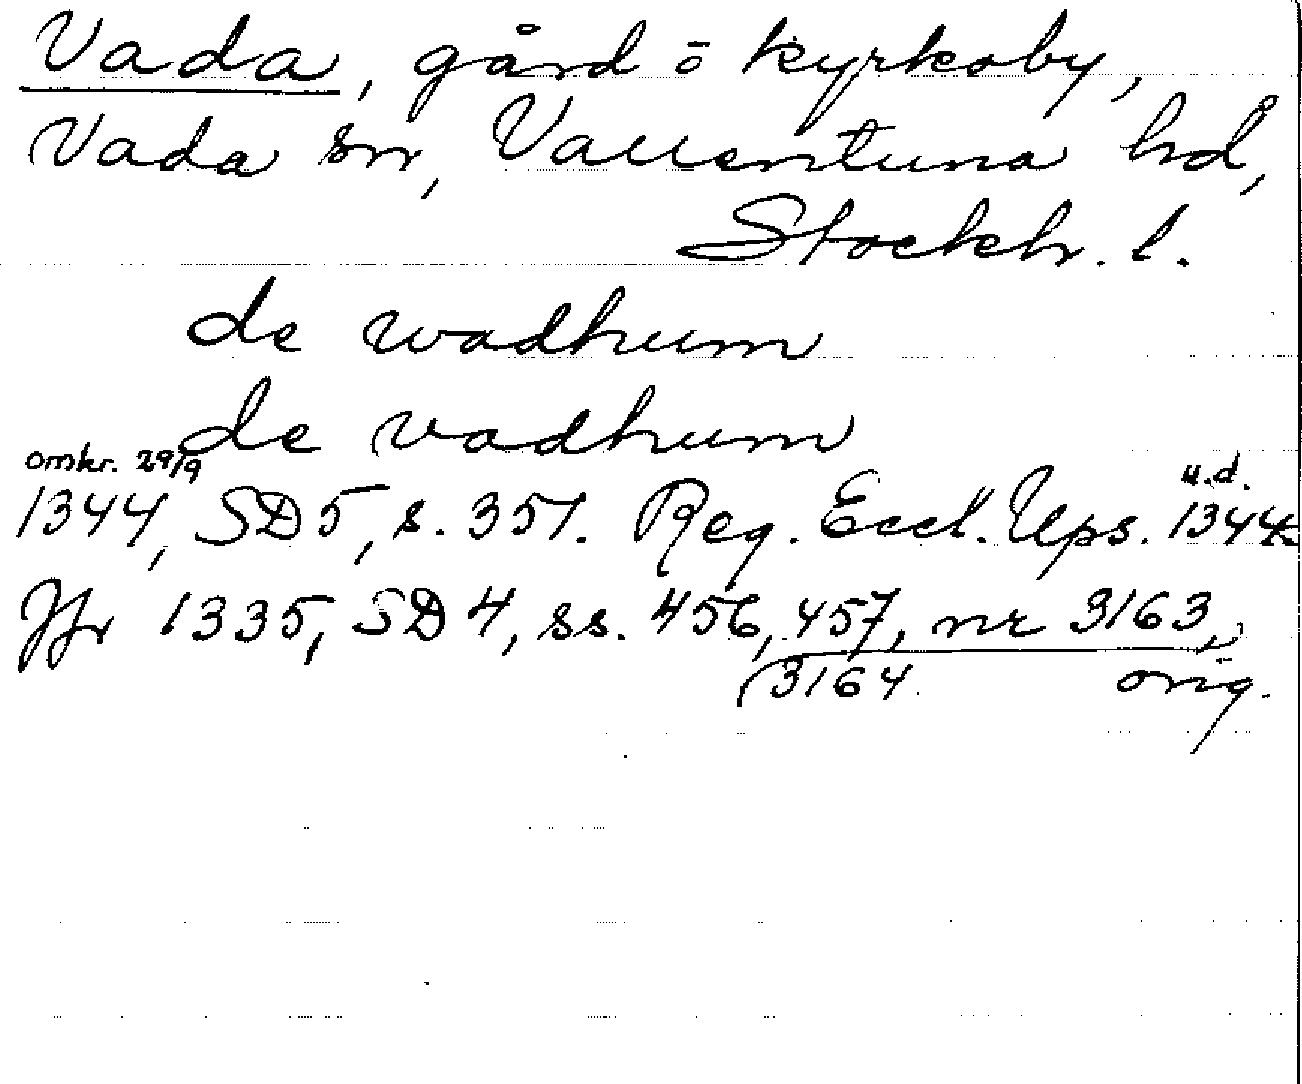 Vada, gård o kyrkoby,
Vada sn, Vallentuna hd,
Stockh. l.
de wadhum
de vadhum
omkr. 29/9
1344, SD5, s. 351. Reg. Eccl. Ups. 1344
u.d.
Jfr 1335, SD4, ss. 456, 457, nr 3163,
3164. orig.